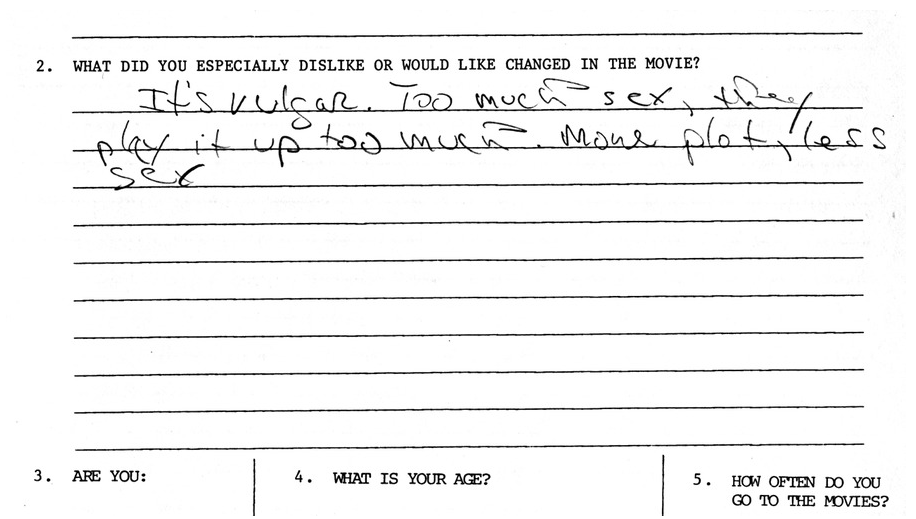 2. WHAT DID YOU ESPECIALLY DISLIKE OR WOULD LIKE CHANGED IN THE MOVIE?
It's vulgar. Too much sex, they
play it up too much. More plot, less
sex
3. ARE YOU:
4. WHAT IS YOUR AGE?
5. HOW OFTEN DO YOU
GO TO THE MOVIES?